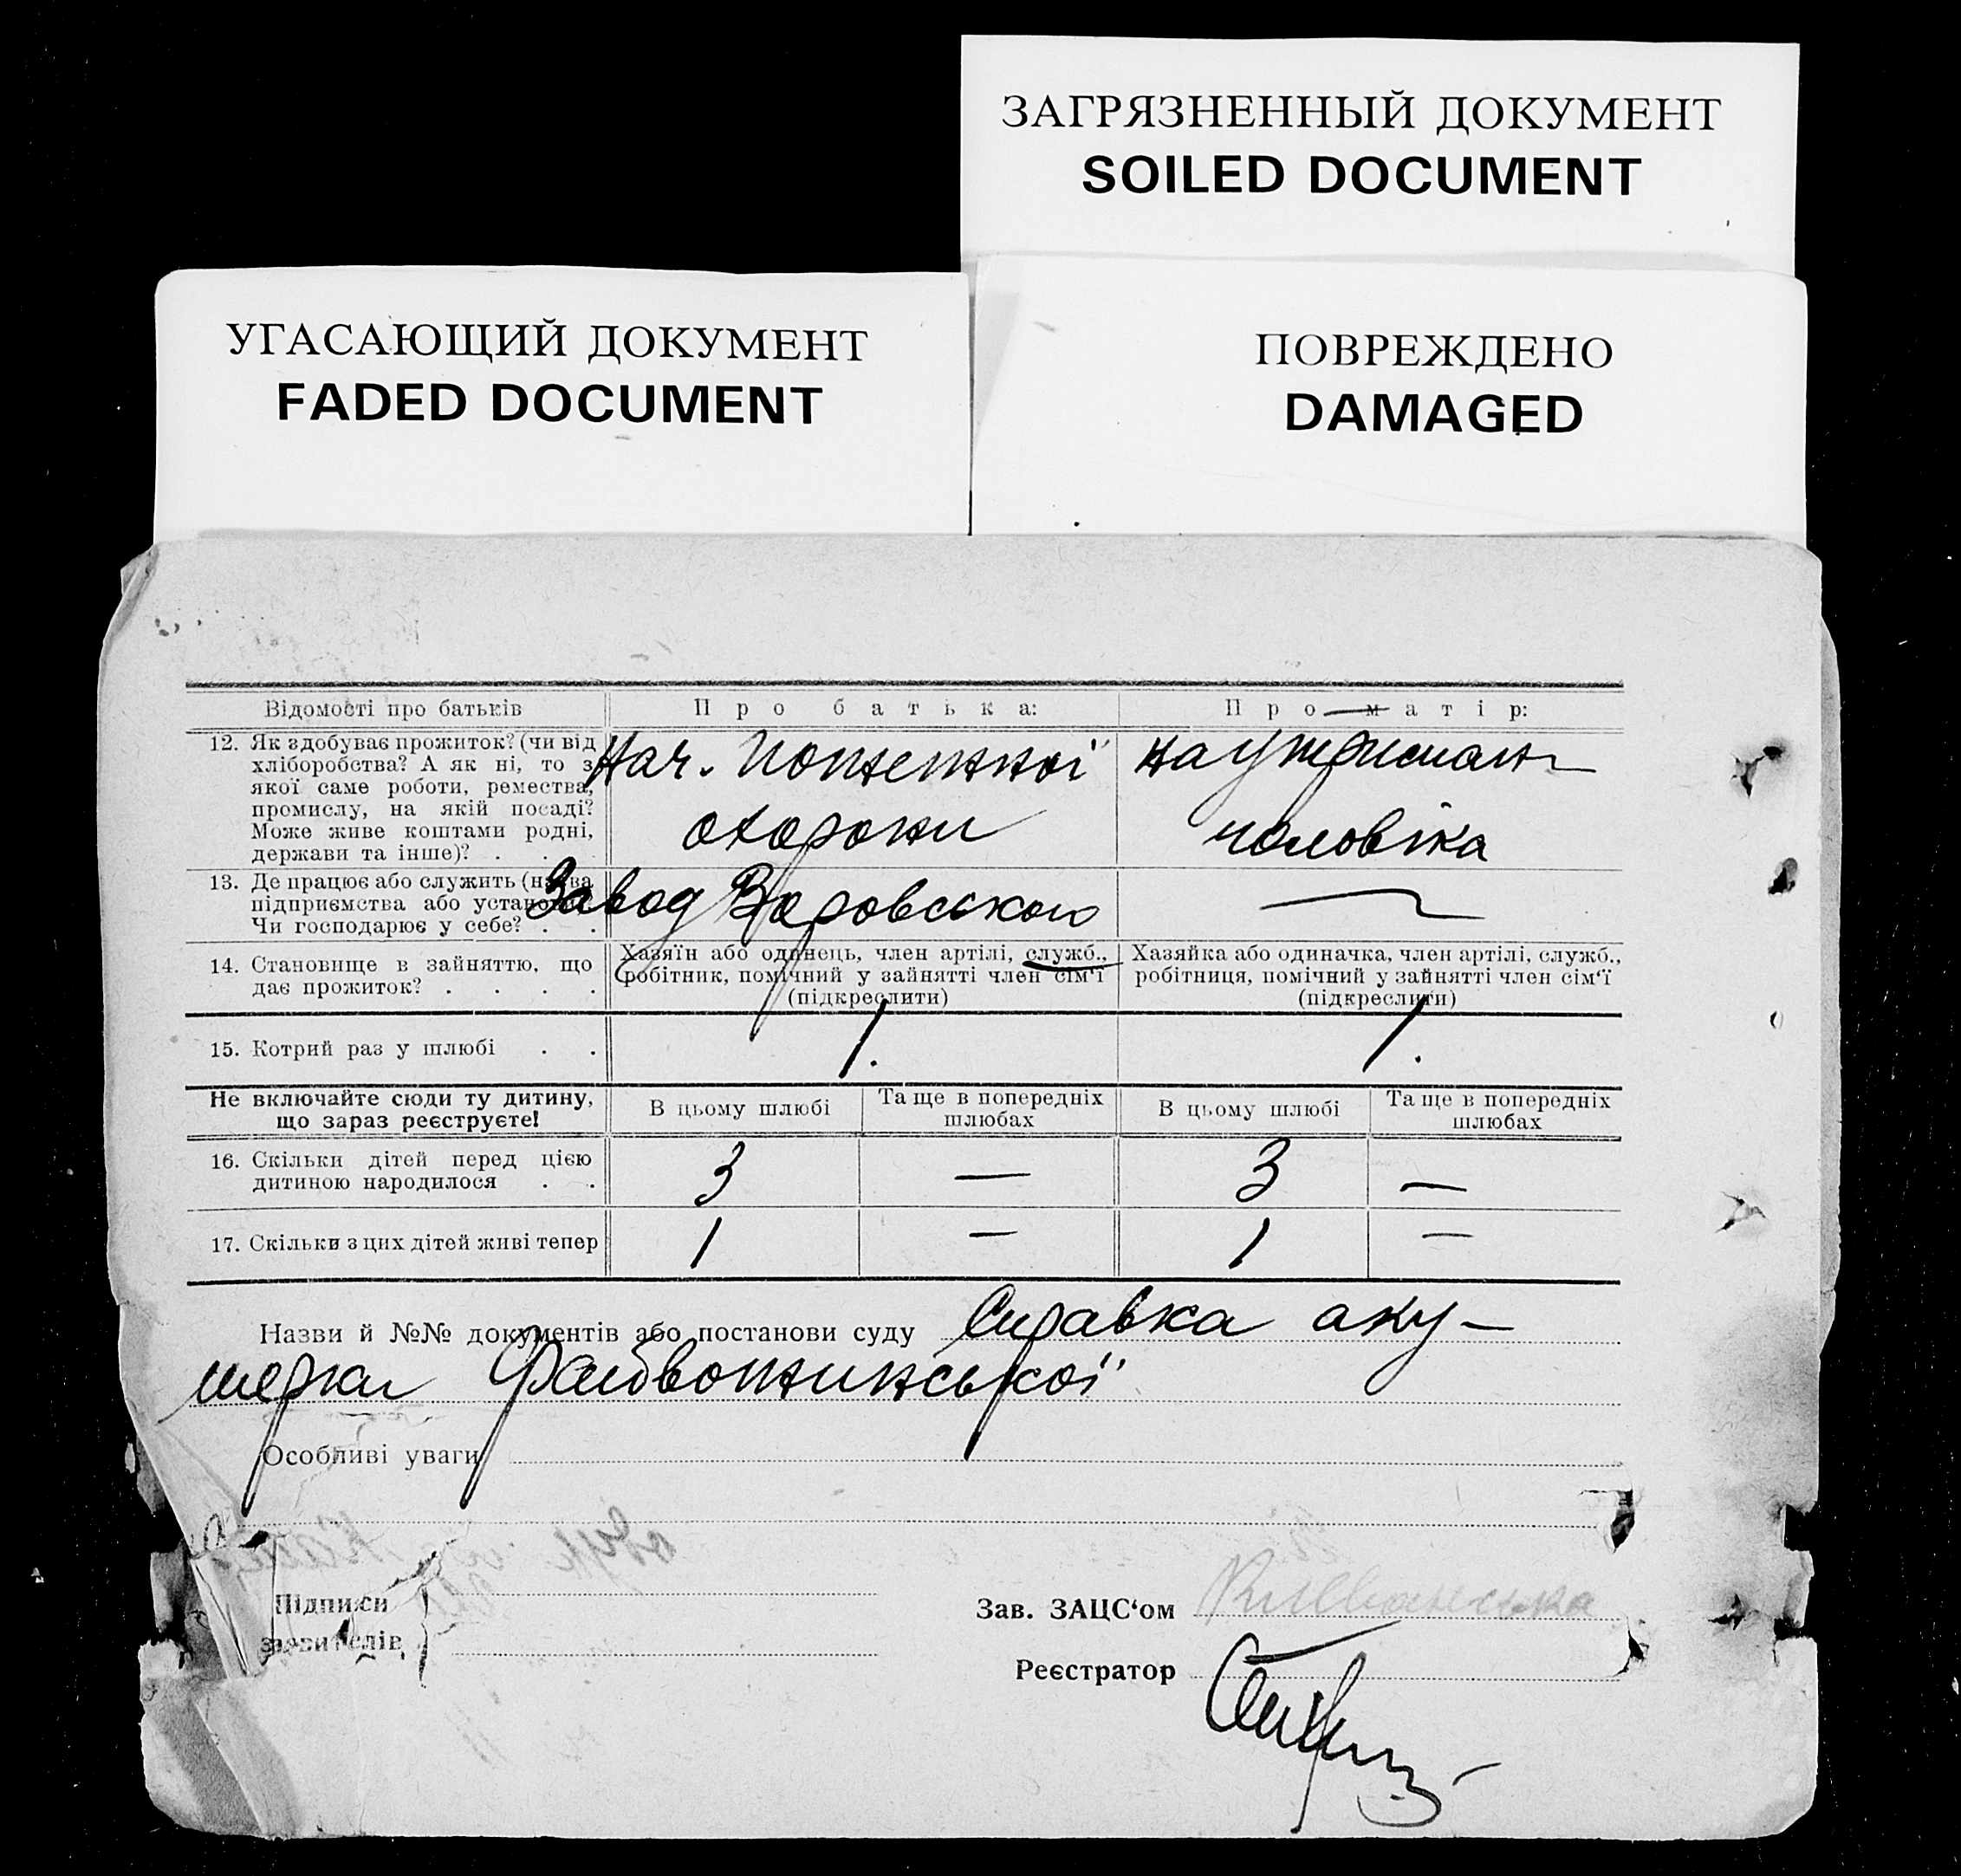 ЗАГРЯЗНЕННЫЙ ДОКУМЕНТ
SOILED DOCUMENT
УГАСАЮЩИЙ ДОКУМЕНТ
FADED DOCUMENT
ПОВРЕЖДЕНО
DAMAGED
Відомості про батьків
Про батька:
Про матір:
12. Як здобуває прожиток? (чи від
хліборобства? А як ні, то з
якої саме роботи, ремества,
промислу, на якій посаді?
Може живе коштами родні,
держави та інше)? . . .
Нач. пожежної
охорони
На утриман
чоловіка
13. Де працює або служить (назва
підприємства або установи?
Чи господарює у себе? . .
Завод Воровського
—
14. Становище в зайняттю, що
дає прожиток? . . . .
Хазяїн або одинець, член артілі, служб.,
робітник, помічний у зайнятті член сім'ї
(підкреслити)
Хазяйка або одиначка, член артілі, служб.,
робітниця, помічний у зайнятті член сім'ї
(підкреслити)
15. Котрий раз у шлюбі . .
1.
1.
Не включайте сюди ту дитину,
що зараз реєструєте!
В цьому шлюбі
Та ще в попередніх
шлюбах
В цьому шлюбі
Та ще в попередніх
шлюбах
16. Скільки дітей перед цією
дитиною народилося . .
3 — 3 —
17. Скільки з цих дітей живі тепер
1 — 1 —
Назви й №№ документів або постанови суду Справка аку-
шерки
Особливі уваги
Підписи
заявителів
Зав. ЗАЦС‘ом
Реєстратор